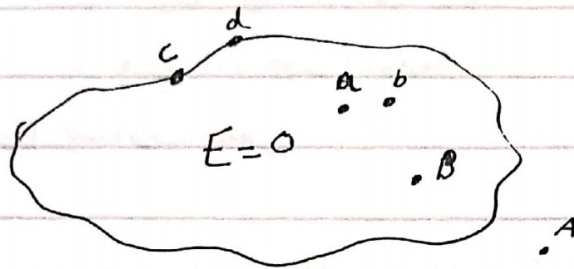 d
c
a b
E=0
B
A